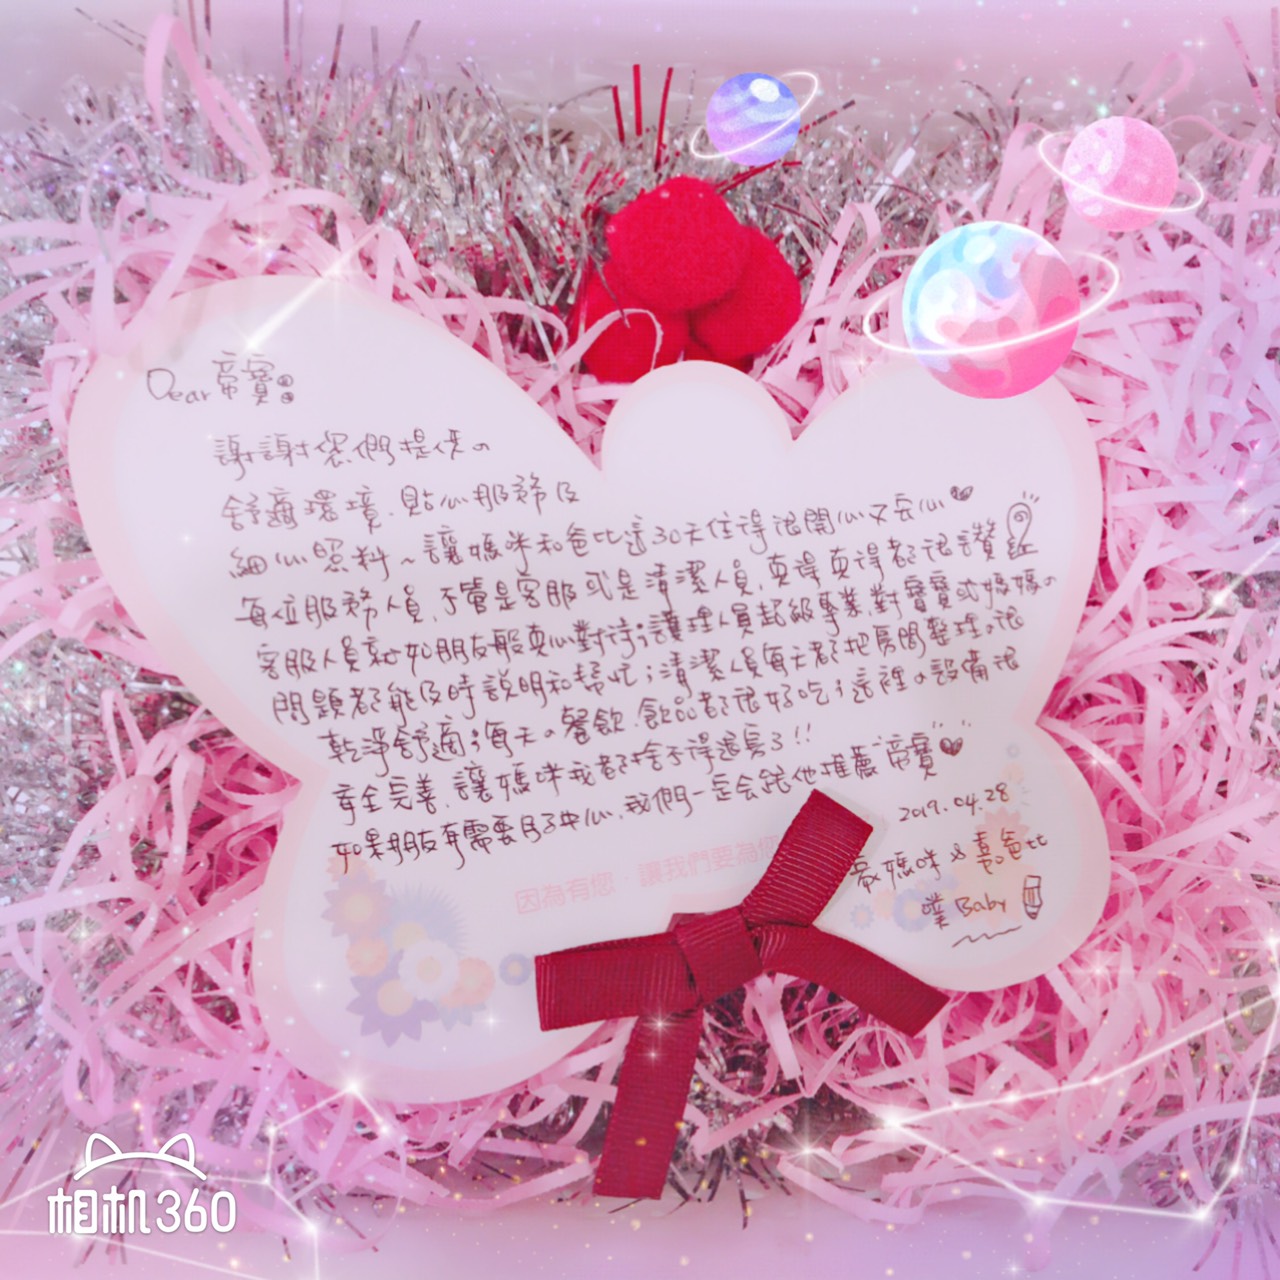 Dear 帝寶:
謝謝您們提供の
舒適環境、貼心服務及
細心照料～讓媽咪和爸比這30天住得很開心又安心
每位服務人員,不管是客服或是清潔人員,真得真得都很讚
客服人員就如朋友般真心對待;護理人員超級專業,對寶寶或媽媽の
問題都能及時說明和幫忙;清潔人員每天都把房間整理の很
乾淨舒適;每天の餐飲、飲品都很好吃;這裡の設備很
安全完善,讓媽咪我都捨不得退房了!!
如果朋友有需要月子中心,我們一定會跟他推薦"帝寶"
2019.04.28
媽咪 & 嘉爸比
噗 Baby
因為有您‧讓我們要為您
相机360